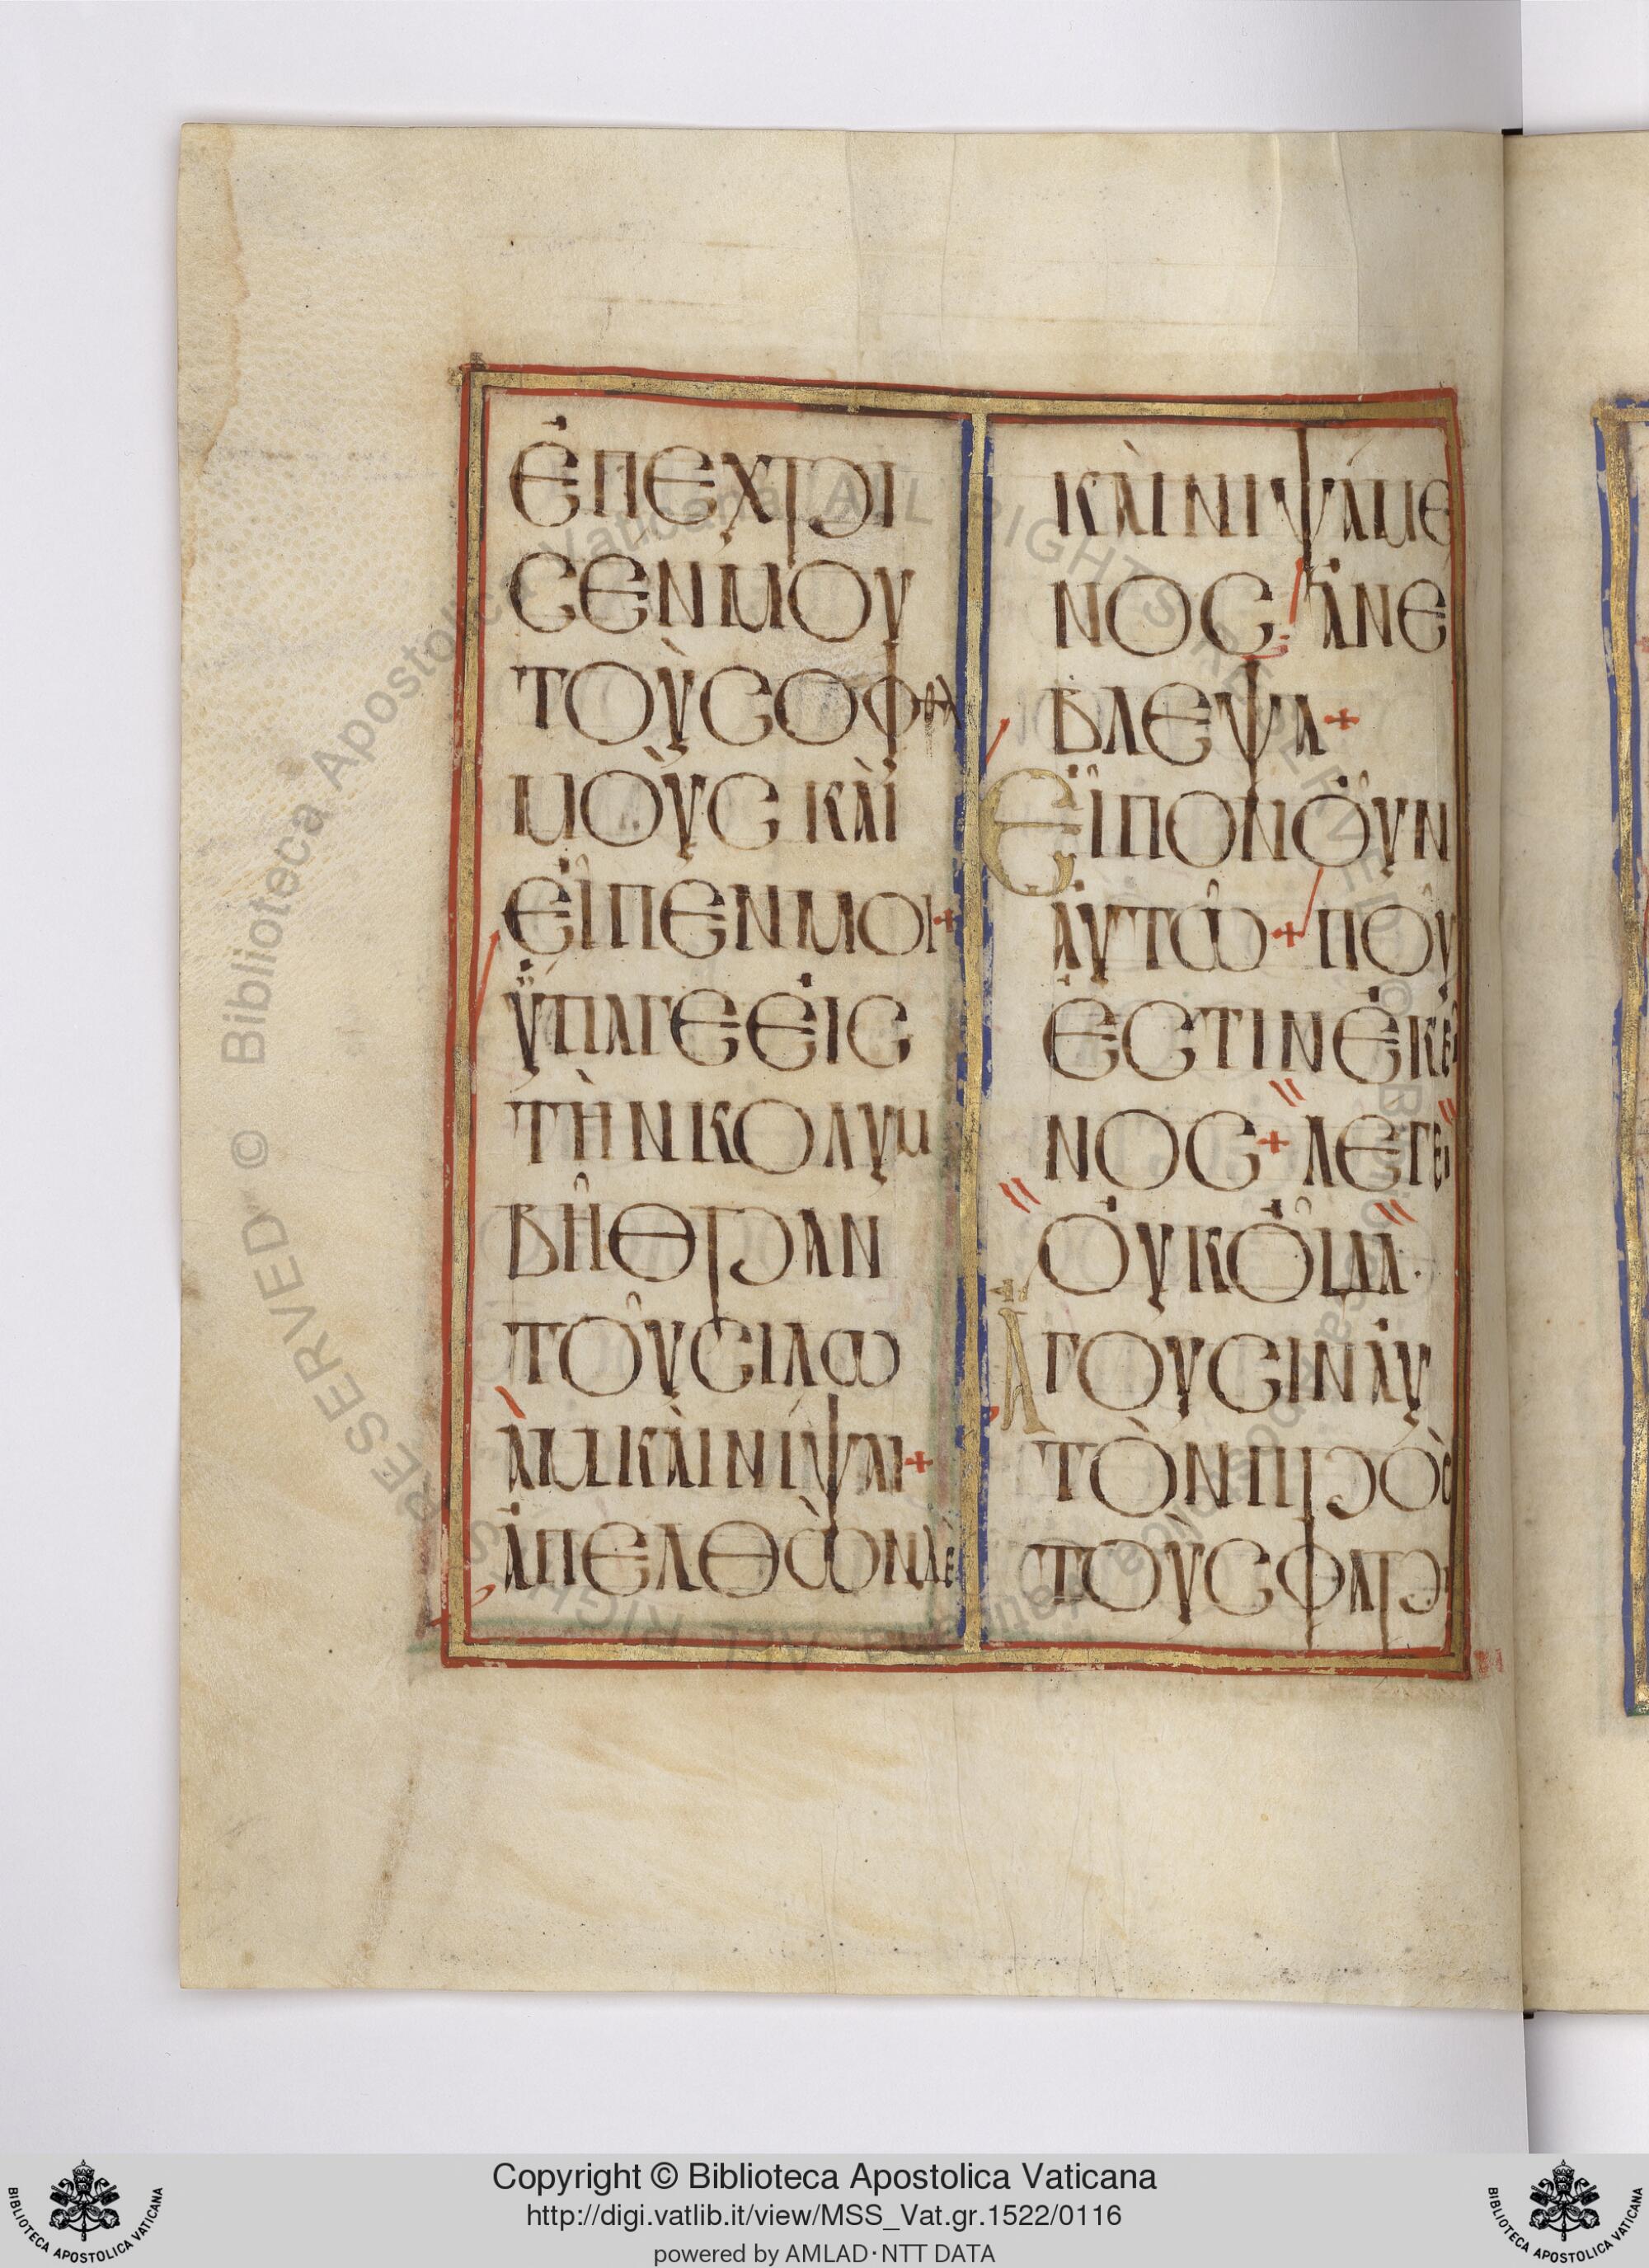 ἐπεχρι
σενμου
τοὺσοφθαλ
μοὺς καὶ
εἶπενμοι+
ὕπαγεεἰς
τὴνκολυμ
βήθραν
τοῦσιλω
ὰμκαὶνίψαι+
ἀπελθὼνδὲ
καὶνιψάμε
νος ἀνέ
βλεψα+
Εἶπονοὖν
αὐτῶ+ποῦ
ἐστινἐκεῖ
νος+λέγει
οὐκοἶδα·
Ἄγουσιναὐ
τὸνπρὸς
τοὺσφαρι
Biblioteca Apostolica Vaticana ALL RIGHTS RESERVED © Biblioteca Apostolica Vaticana ALL RIGHTS RESERVED ©
Copyright © Biblioteca Apostolica Vaticana
http://digi.vatlib.it/view/MSS_Vat.gr.1522/0116
powered by AMLAD·NTT DATA
BIBLIOTECA APOSTOLICA VATICANA
BIBLIOTECA APOSTOLICA VATICANA